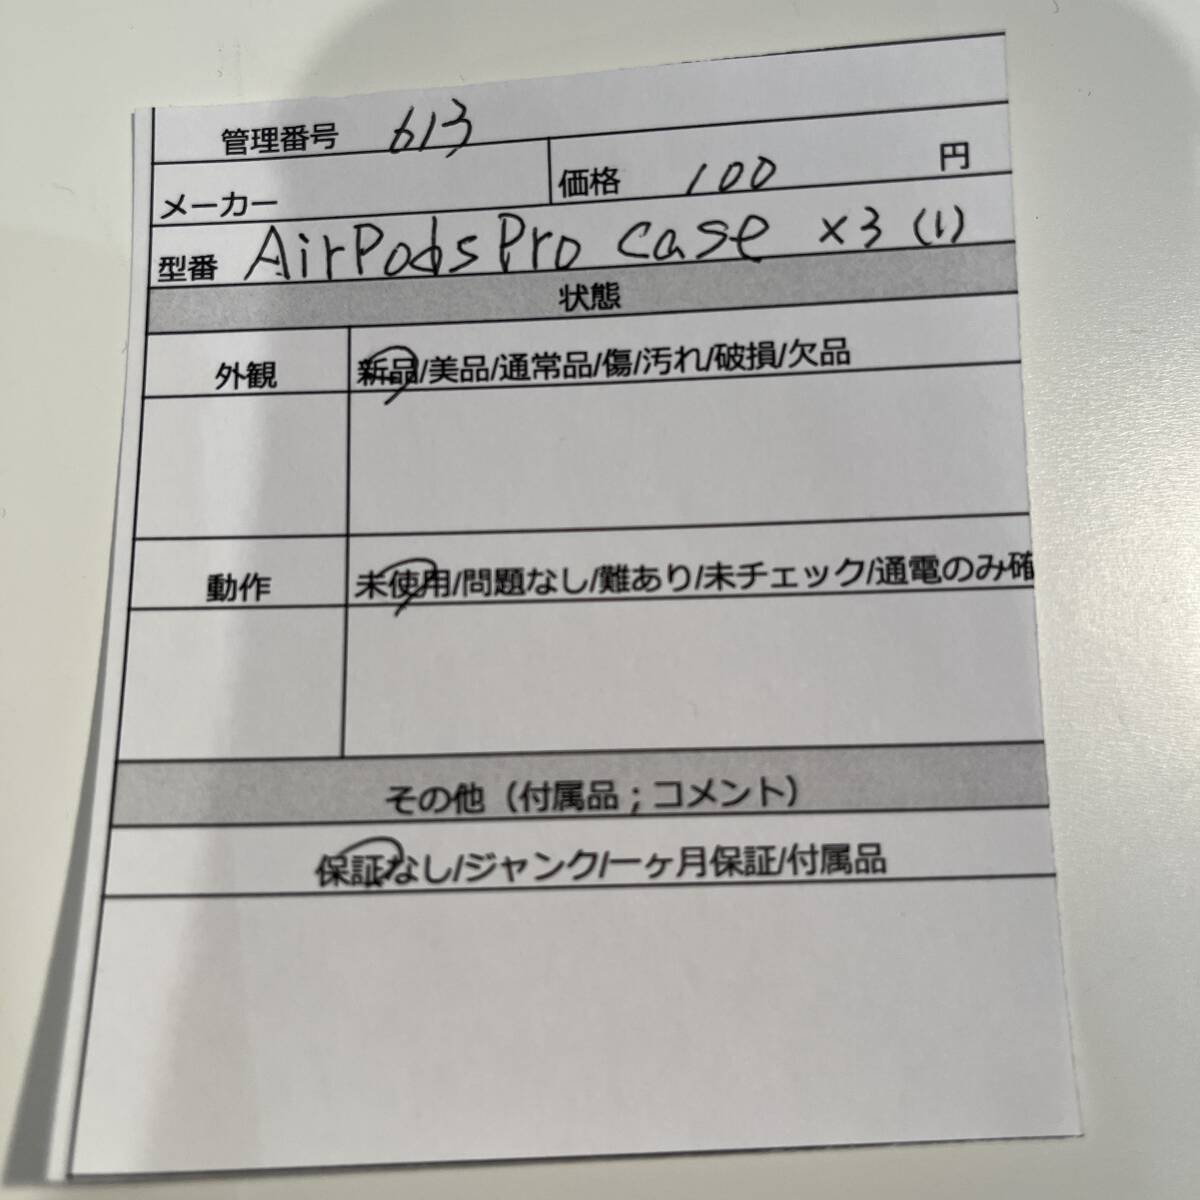 管理番号 613
メーカー 価格 100 円
型番 AirPods Pro case ×3 (1)
状態
外観 新品/美品/通常品/傷/汚れ/破損/欠品
動作 未使用/問題なし/難あり/未チェック/通電のみ確
その他（付属品；コメント）
保証なし/ジャンク/一ヶ月保証/付属品